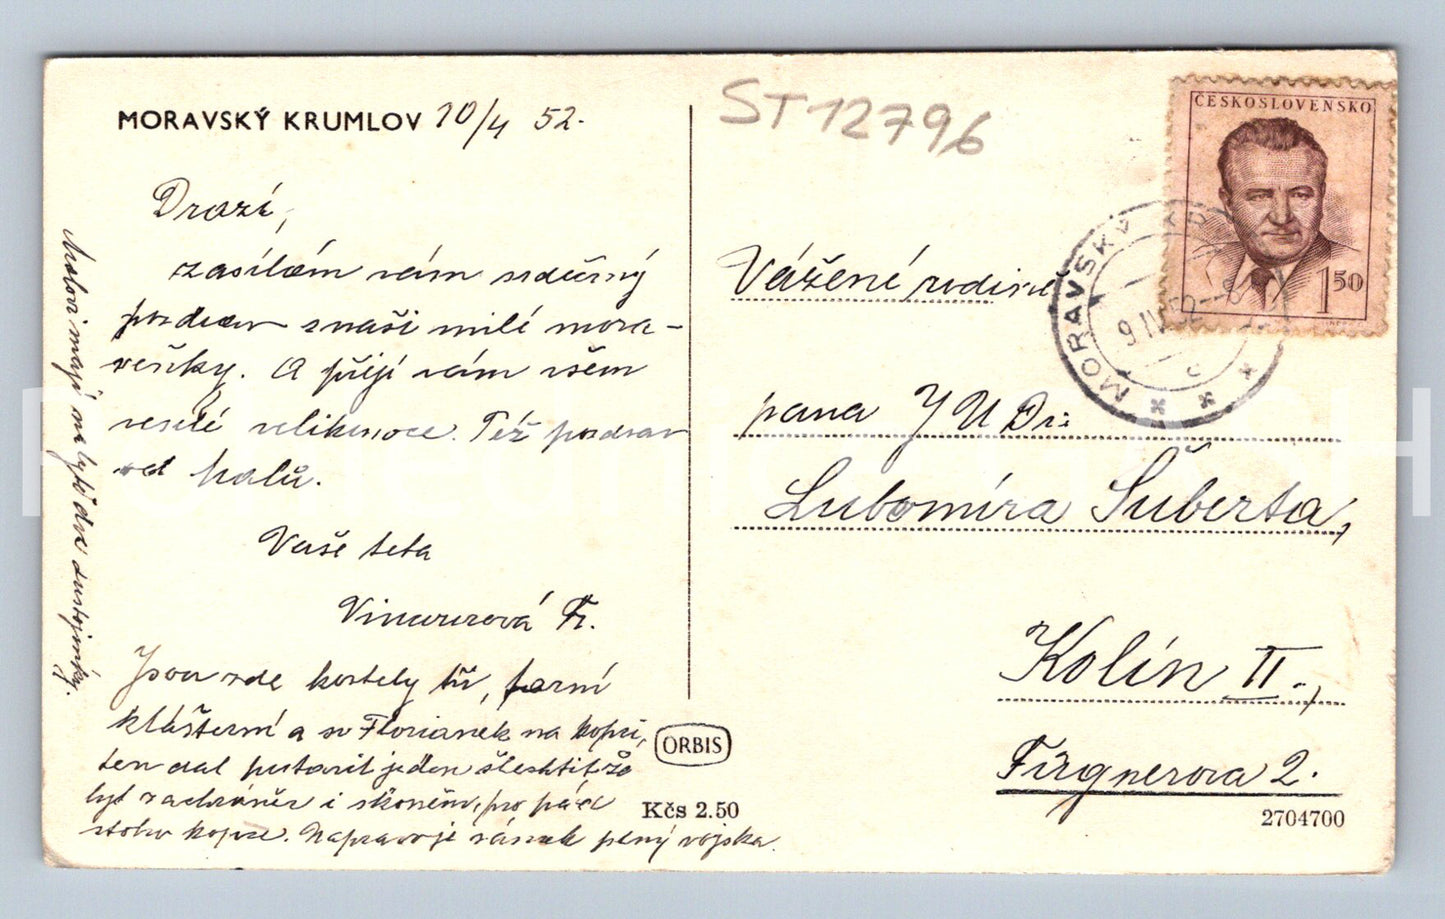 MORAVSKÝ KRUMLOV 10/4 52.
Drazí,
zasílám vám srdečný
pozdrav z naší milé mora-
věnky. A přeji vám všem
veselé velikonoce. Též pozdrav
od Malů.
Vaše teta
Vinwurzová Fr.
Jsou zde kostely tři, farní
klášterní a sv Floriánek na kopci,
ten dal postavit jeden šlechtic že
byl zachráněn i s koněm, pro pád
s toho kopce. Napravo je zámek plný vojska.
mají byt dva
ORBIS
Kčs 2.50
ST 12796
ČESKOSLOVENSKO
1 50
MORAVSKÝ KR
9.IV.52-8
c
Vážené rodině
pana JUDr:
Lubomíra Šuberta,
Kolín II.,
Fügnerova 2.
2704700